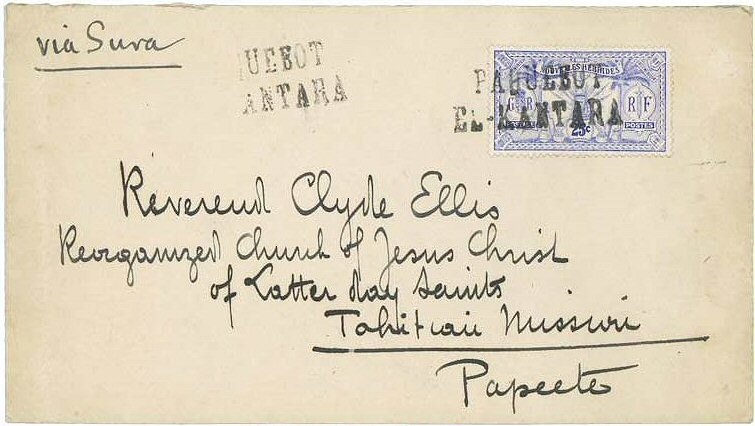 via Suva
UEBOT
ANTARA
PAQUEBOT
EL-KANTARA
NOUVELLES HEBRIDES
G R
R F
POSTES
25c
Reverend Clyde Ellis
Reorganized Church of Jesus Christ
of Latter day Saints
Tahitian Mission
Papeete